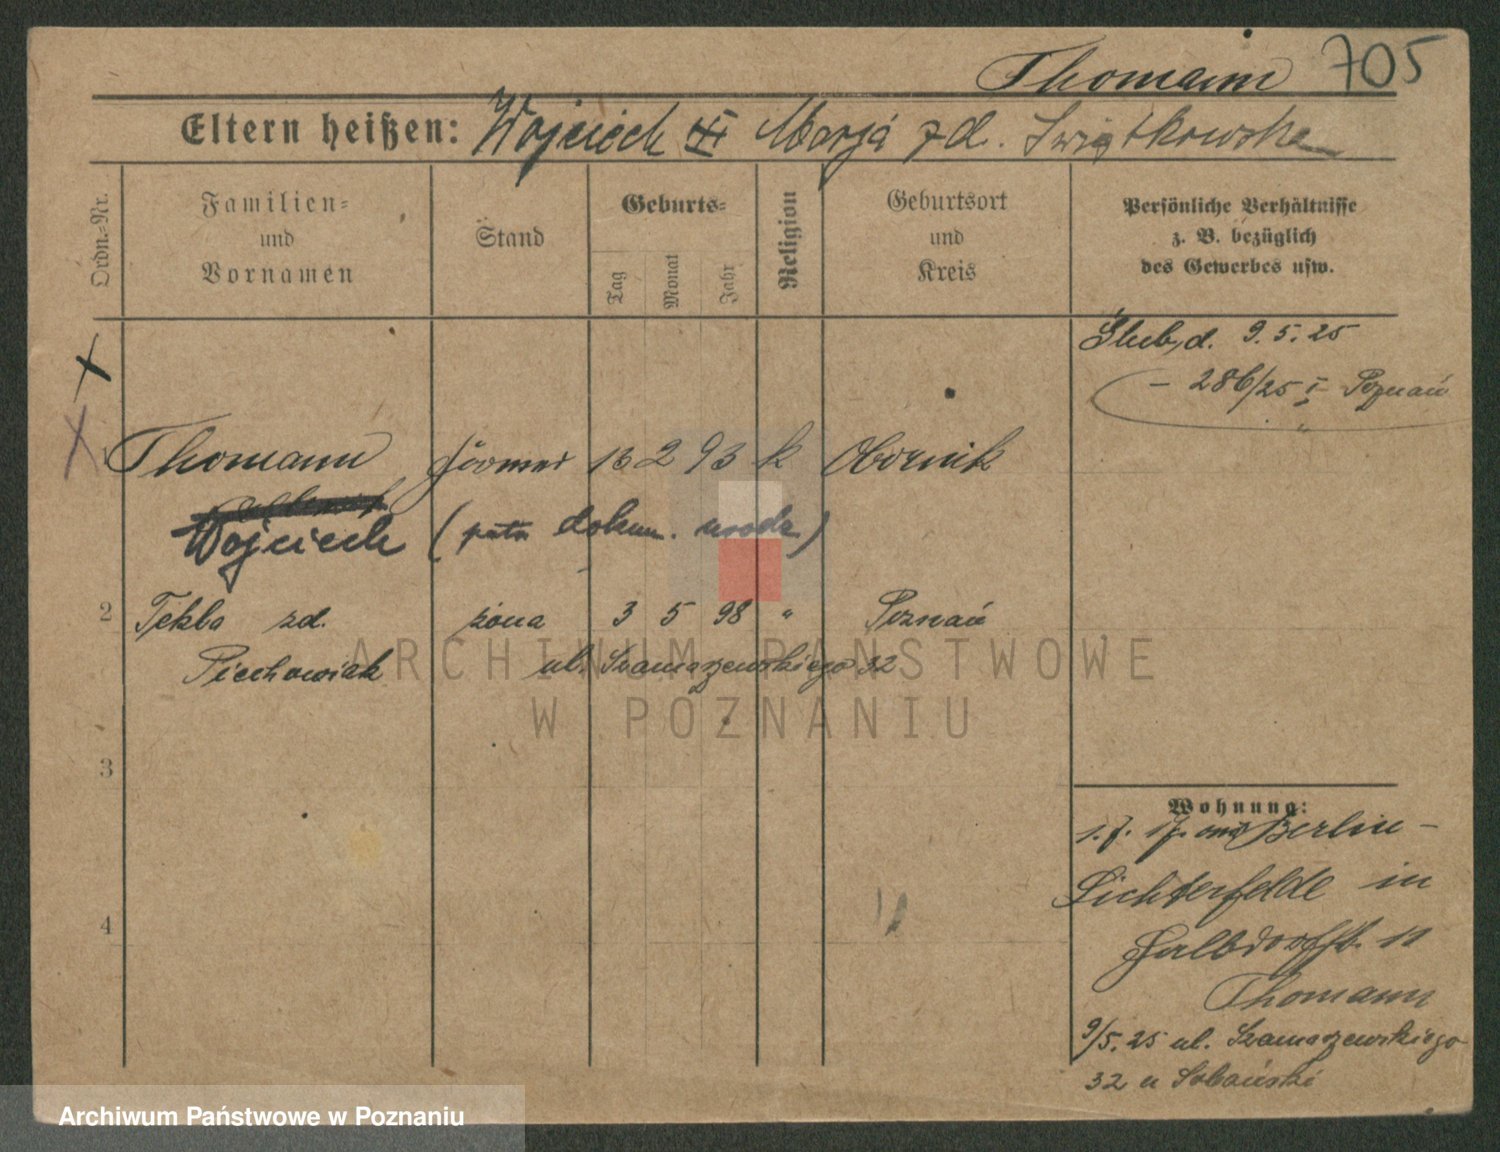 Thomann 705
Eltern heißen: Wojciech i Marja zd. Świątkowska
Ordn.-Nr.
Familien-
und
Vornamen
Stand
Geburts-
Tag
Monat
Jahr
Religion
Geburtsort
und
Kreis
Persönliche Verhältnisse
z. B. bezüglich
des Gewerbes usw.
Ślub, d. 9.5.25
- 286/25 I Poznań
Thomann 13 2 93 k Obornik
Wojciech ( dokum. urodz.)
2 Tekla zd. żona 3 5 98 " Poznań
Piechowiak ul. Szamarzewskiego 32
3
4
Wohnung:
1.7.17. Berlin-
Lichterfelde in
11
Thomann
9/5.25 ul. Szamarzewskiego
32 u Sobański
ARCHIWUM PAŃSTWOWE
W POZNANIU
Archiwum Państwowe w Poznaniu